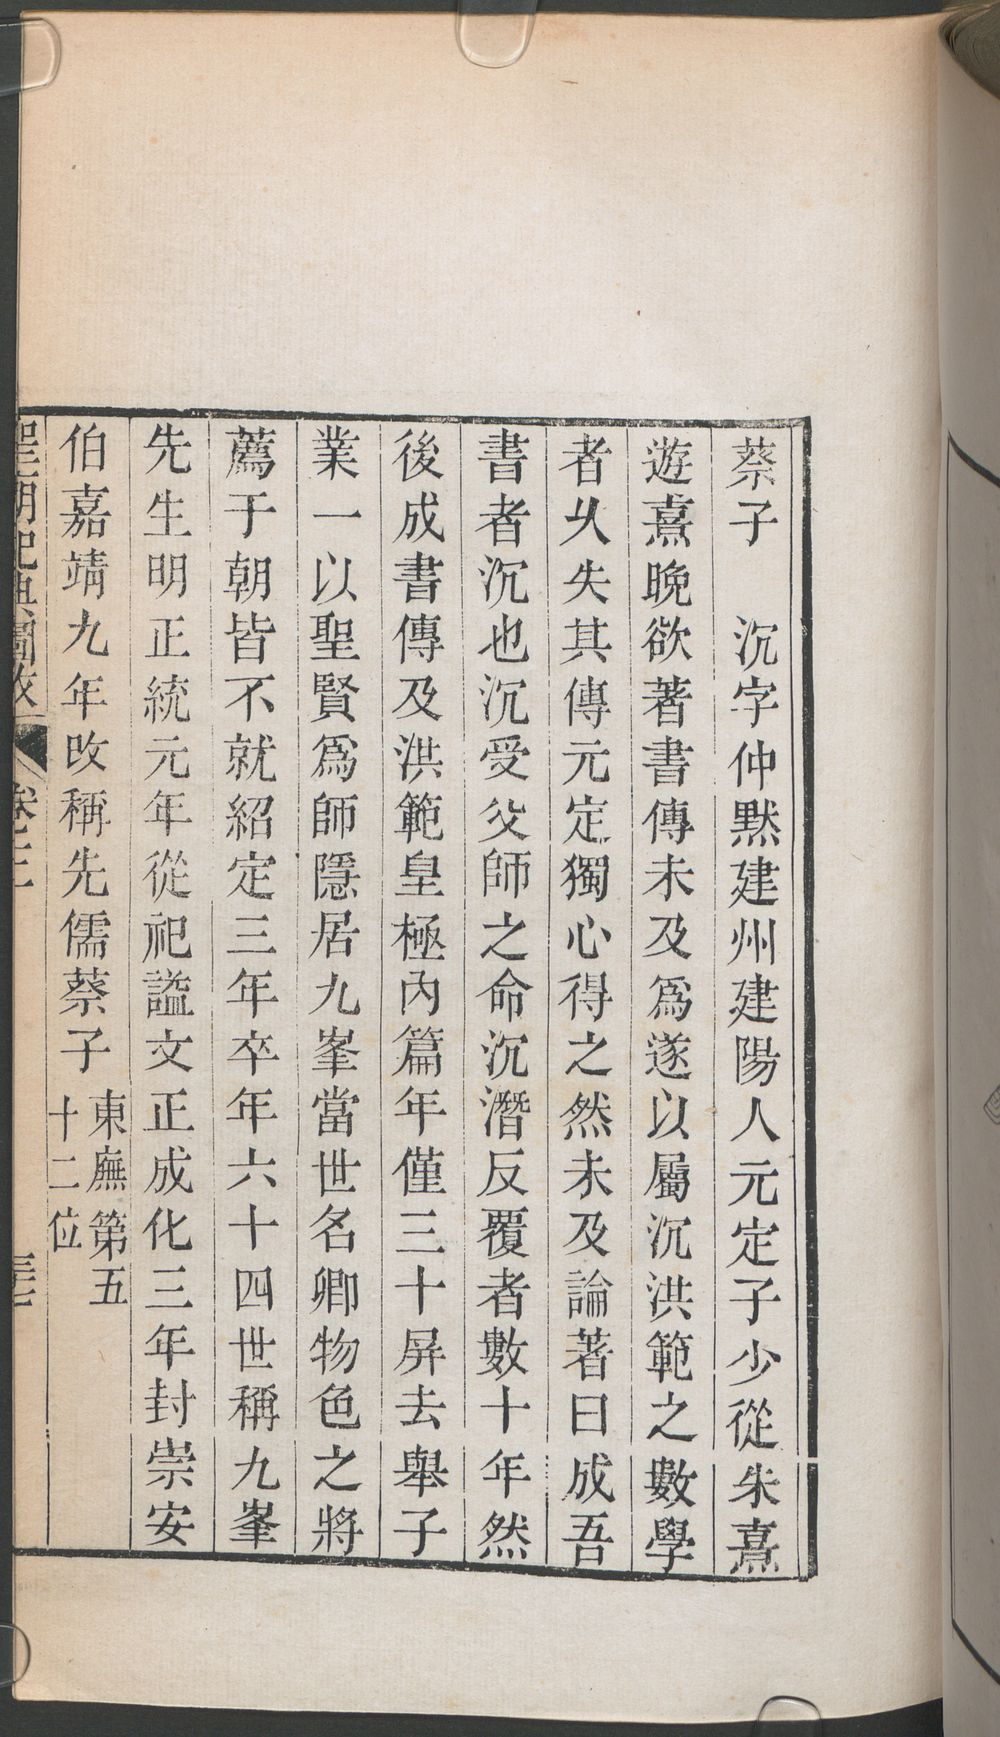 蔡子　沉字仲默建州建陽人元定子少從朱熹
遊熹晚欲著書傳未及爲遂以屬沉洪範之數學
者乆失其傳元定獨心得之然未及論著曰成吾
書者沉也沉受父師之命沉潛反覆者數十年然
後成書傳及洪範皇極內篇年僅三十屏去舉子
業一以聖賢爲師隱居九峯當世名卿物色之將
薦于朝皆不就紹定三年卒年六十四世稱九峯
先生明正統元年從祀謚文正成化三年封崇安
伯嘉靖九年改稱先儒蔡子
東廡第五
十二位
聖朝祀典圖攷
卷三